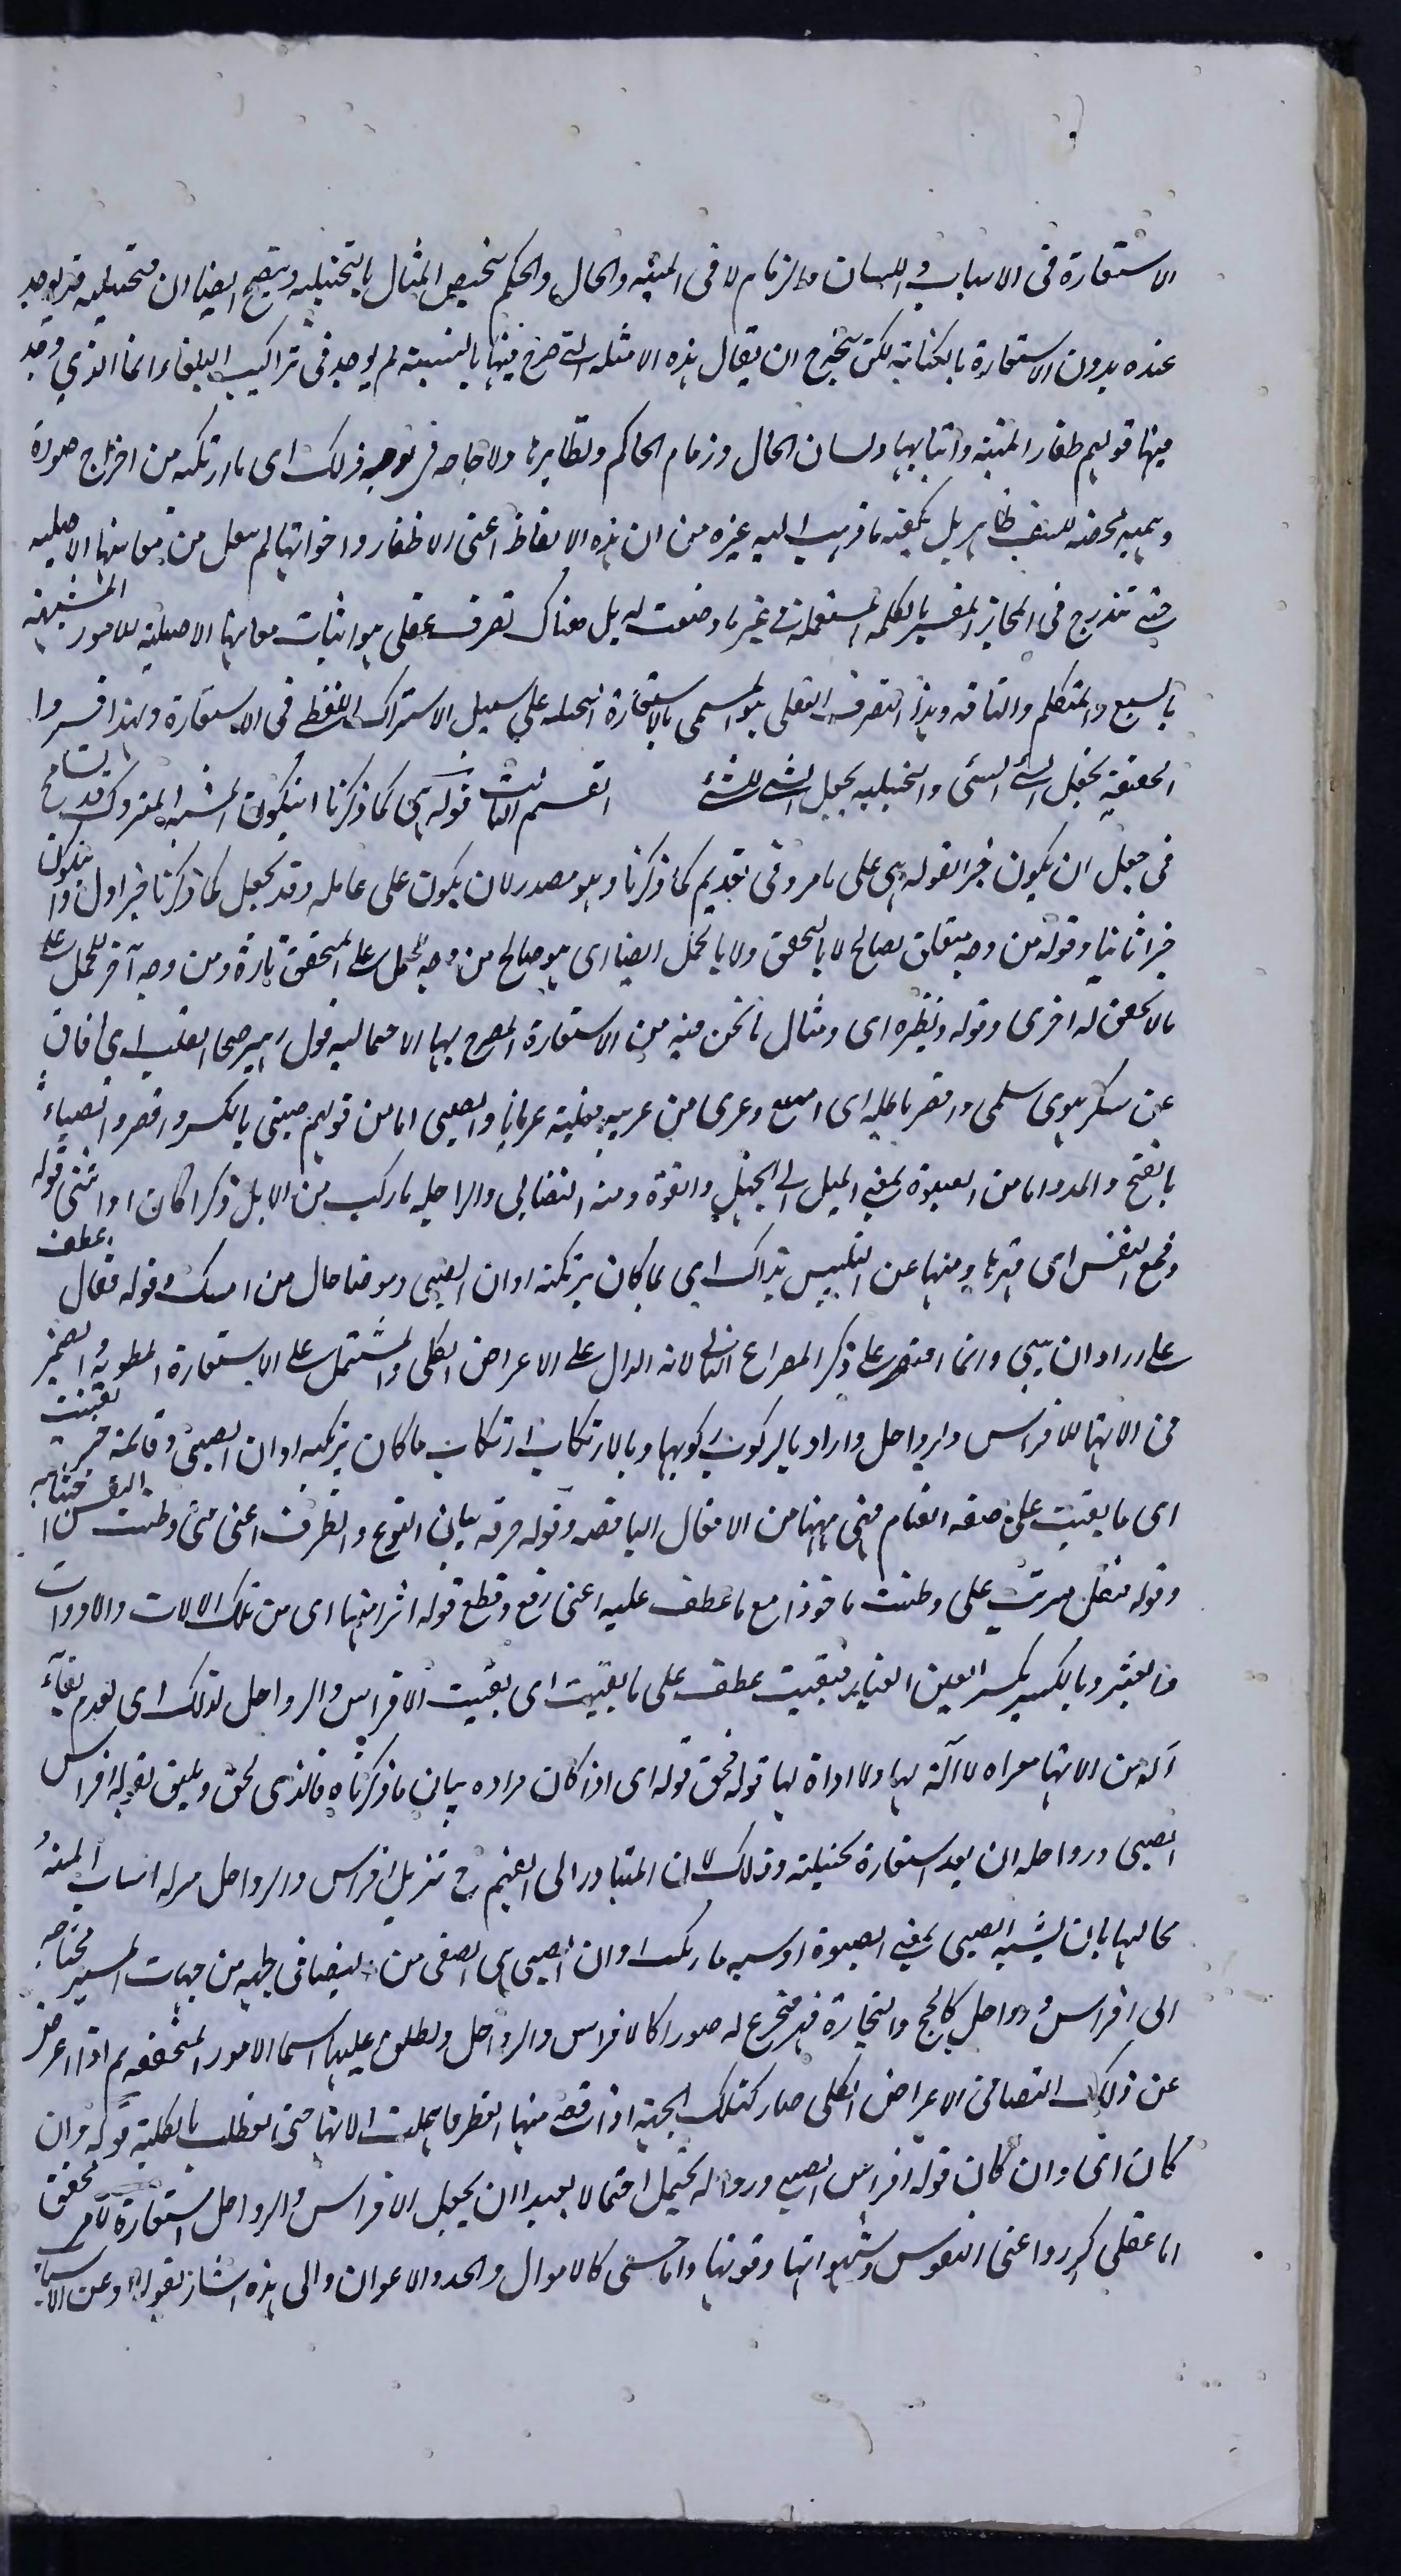 الاستعارة فى الانياب واللسان والزمام لا فى المنية والحال والحكم تخصيص المثال بالتخييلية ويتضح ايضا ان تخييليه قد يوجد
عنده بدون الاستعارة بالكناية لكن يتجه ح ان يقال هذه الامثلة التى صرح فيها بالتشبيه لم يوجد فى تراكيب البلغاء انما الذى وجد
فيها قولهم اظفار المنية وانيابها ولسان الحال وزمام الحاكم ونظايرها ولا حاجة فى توجيه ذلك اى ما ارتكبه من اختراع صورة
وهمية محضة للتعسف ظاهر بل يكفيه ما ذهب اليه غيره من ان هذه الالفاظ اعنى الاظفار واخواتها لم تنقل من معانيها الاصلية
حتى تندرج فى المجاز المفسر بالكلمة المستعملة فى غير ما وضعت له بل هناك تصرف عقلى هو اثبات معانيها الاصلية للامور المشبهة
بالسبع والمتكلم والناقة وهذا التصرف العقلى هو المسمى بالاستعارة التخييلية على سبيل الاشتراك اللفظى فى الاستعارة ولهذا فسروا
الحقيقية بجعل الشئ الشئ والتخييلية بجعل الشئ للشئ القسم الثالث قوله هى كما ذكرنا ان يكون المشبه المتروك قد تسامح
فى جعل ان يكون خبرا لقوله هى على ما مر وفى تقديم كما ذكرنا وهو مصدر لان يكون على عامله وقد يجعل كما ذكرنا خبرا اول وان يكون
خبرا ثانيا وقوله من وجه متعلق بصالح لا بالتحقق ولا بالحمل ايضا اى هو صالح من وجه للحمل على المتحقق تارة ومن وجه آخر للحمل على
ما لا تحقق له اخرى وقوله ونظيره اى ومثال ما نحن فيه من الاستعارة المصرح بها الاحتمالية قول زهير صحا القلب اى افاق
عن سكر هوى سلمى واقصر باطله اى امتنع وعرى من عريه تعرية عريانا والصبى اما من قولهم صبى بالكسر والقصر والصباء
بالفتح والمد واما من الصبوة بمعنى الميل الى الجهل والفتوة ومنه التصابى والراحلة ما ركب من الابل ذكرا كان او انثى قوله
وقمع النفس اى قهرها ومنعها عن التلبس بذاك اى بما كان يرتكبه اوان الصبى وموضا حال من امسك وقوله فقال عطف
على اراد ان يبين وانما اقتصر على ذكر المصراع الثانى لانه الدال على الاعراض الكلى والمشتمل على الاستعارة المطلوبة والضمير
فى الاتها للافراس والرواحل واراد بالركوب ركوبها وبالارتكاب ارتكاب ما كان يرتكبه اوان الصبى وقائمة خبر بقيت
اى ما بقيت على صفة القيام فهى ههنا من الافعال الناقصة وقوله حرفه بيان النوع والظرف اعنى متى وطنت النفس
وقوله فنقل مرتب على وطنت ماخوذا مع ما عطف عليه اعنى رفع وقطع قوله اثرا منها اى من تلك الالات والادوات
فالعثير وبالكسر بكسر العين الغبار فبقيت عطف على ما بقيت اى بقيت الافراس والرواحل لذلك اى لعدم بقاء
آلة من الاتها معراه لا آلة لها ولا اداة لها قوله فحق قوله اى اذا كان مراده بيان ما ذكرناه فالذى لحق ويليق بقوله افراس
الصبى ورواحله ان يعد استعارة تخييلية وذلك لان المتبادر الى الفهم ح تنزيل افراس والرواحل منزلة انياب المنية
مخالبها بان يشبه الصبى بمعنى الصبوة او سبه ما يركب اوان الصبى اى الصغر من التصابى بجهة من جهات المسير محتاجة
الى افراس ورواحل كالحج والتجارة فيخترع له صورا كالافراس والرواحل ويطلق عليها اسما الامور المتحققة ثم اذا اعرض
عن ذلك التصابى الاعراض الكلى صار كتلك الجهة اذا قضى منها الوطر فاهملت الاتها حتى تعطلت بالكلية قوله وان
كان اى وان كان قوله افراس الصبى ورواحله يحتمل احتمالا بعيدا ان يجعل الافراس والرواحل استعارة لامر محقق
اما عقلى كدواعى النفوس وشهواتها وقوتها واما حسى كالاموال والجد والاعوان والى هذه اشار بقوله وعن الاسباب